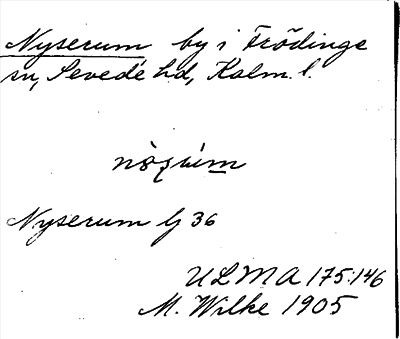 Nyserum by i Frödinge
sn, Sevede hd, Kalm. l.
Nyserum lj 36
ULMA 175:146
M. Wilke 1905